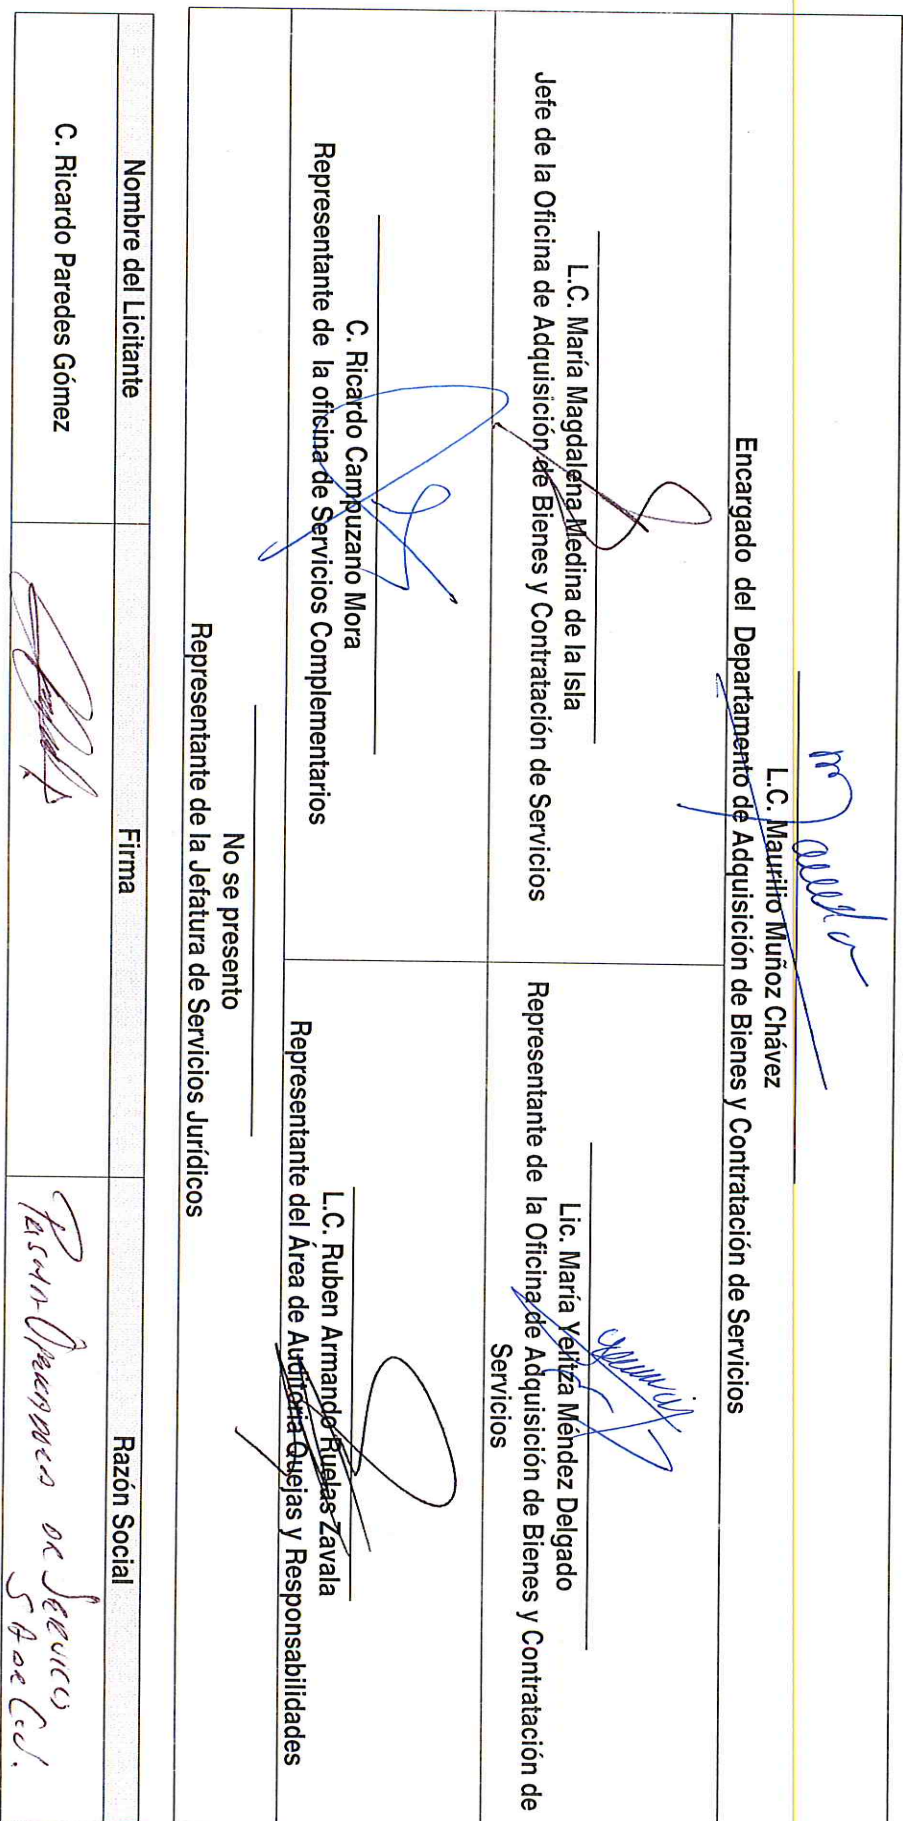 L.C. Maurilio Muñoz Chávez
Encargado del Departamento de Adquisición de Bienes y Contratación de Servicios
L.C. María Magdalena Medina de la Isla
Jefe de la Oficina de Adquisición de Bienes y Contratación de Servicios
Lic. María Yelitza Méndez Delgado
Representante de la Oficina de Adquisición de Bienes y Contratación de
Servicios
C. Ricardo Campuzano Mora
Representante de la oficina de Servicios Complementarios
L.C. Ruben Armando Ruelas Zavala
Representante del Área de Auditoria Quejas y Responsabilidades
No se presento
Representante de la Jefatura de Servicios Jurídicos
Nombre del Licitante
Firma
Razón Social
C. Ricardo Paredes Gómez
de Servicios
SA de C.V.